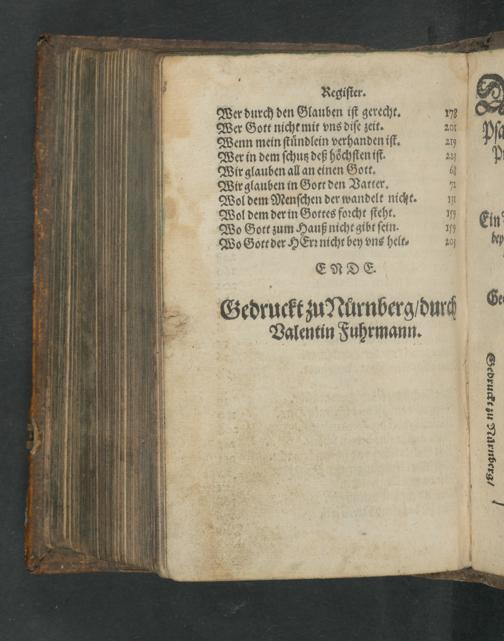 Register.
Wer durch den Glauben ist gerecht. 178
Wer Gott nicht mit vns dise zeit. 201
Wenn mein stündlein verhanden ist. 219
Wer in dem schutz deß höchsten ist. 223
Wir glauben all an einen Gott. 68
Wir glauben in Gott den Vatter. 72
Wol dem Menschen der wandelt nicht. 131
Wol dem der in Gottes forcht steht. 159
Wo Gott zum Hauß nicht gibt sein. 159
Wo Gott der HErr nicht bey vns helt. 203
ENDE.
Gedruckt zu Nürnberg/durch
Valentin Fuhrmann.
Ein
bey
Ge
Gedruckt zu Nürnberg/